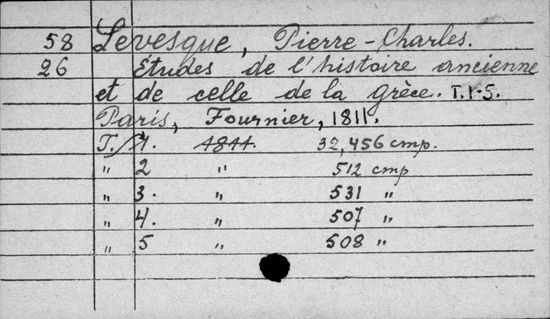 58 Levesque, Pierre-Charles.
26 Études de l'histoire ancienne
et de celle de la grèce. T. 1-5.
Paris, Fournier, 1811.
T. 1. 1811. 32, 456 cmp.
" 2 " 512 cmp
" 3. " 531 "
" 4. " 507 "
" 5 " 508 "